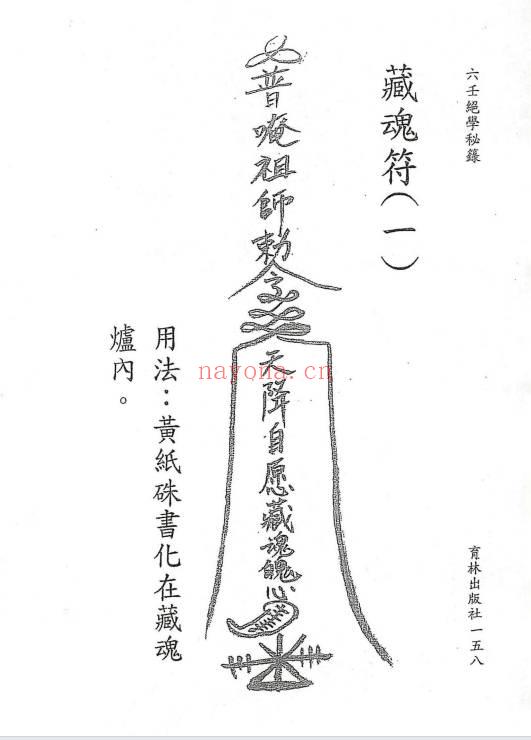 六壬絕學秘籙
藏魂符（一）
普唵祖師勅令
天降自愿藏魂魄心
用法：黃紙硃書化在藏魂
爐內。
育林出版社一五八
nayona.cn